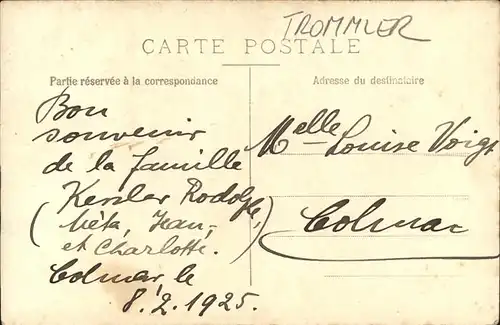 TROMMLER
CARTE POSTALE
Partie réservée à la correspondance
Adresse du destinataire
Bon
souvenir
de la famille
Kessler Rodolfe,
(Méta, Jean,
et Charlotte.)
Colmar, le
8.2.1925.
Melle Louise Voigt
Colmar